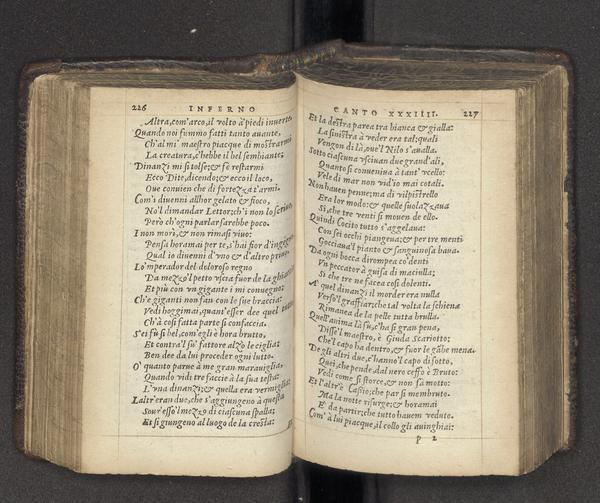 226 INFERNO
Altra, com'arco, il volto à piedi inuerte.
Quando noi fummo fatti tanto auante,
Ch'al mi' maestro piacque di mostrarmi
La creatura, c'hebbe il bel sembiante;
Dinanzi mi si tolse; & fè restarmi
Ecco Dite, dicendo; & ecco il loco,
Oue conuien che di fortezza t'armi.
Com'i diuenni allhor gelato & fioco,
No'l dimandar Lettor; ch'i non lo scriuo,
Però ch'ogni parlar sarebbe poco.
I non morì, & non rimasi viuo:
Pensa horamai per te, s'hai fior d'ingegno,
Qual io diuenni d'vno & d'altro priuo.
Lo'mperador del doloroso regno
Da mezzo'l petto vscia fuor de la ghiaccia:
Et più con vn gigante i mi conuegno;
Ch'e giganti non fan con le sue braccia:
Vedi hoggimai, quant'esser dee quel tutto
Ch'à così fatta parte si confaccia.
S'ei fù sì bel, com'egli è hora brutto,
Et contra'l su' fattore alzò le ciglia;
Ben dee da lui proceder ogni lutto.
O' quanto parue à me gran marauiglia,
Quando vidi tre faccie à la sua testa:
L'vna dinanzi; & quella era vermiglia;
L'altr'eran due, che s'aggiungeno à questa
Sour'esso'l mezzo di ciascuna spalla;
Et si giungeno al luogo de la cresta:
CANTO XXXIIII. 227
Et la destra parea tra bianca & gialla:
La sinistra à veder era tal; quali
Vengon di là, oue'l Nilo s'aualla.
Sotto ciascuna vsciuan due grand'ali,
Quanto si conueniua à tant'vcello:
Vele di mar non vid'io mai cotali.
Non hauen penne; ma di vilpistrello
Era lor modo: & quelle suolazzaua
Sì, che tre venti si mouen de ello.
Quindi Cocito tutto s'aggelaua:
Con sei occhi piangeua; & per tre menti
Gocciaua'l pianto & sanguinosa baua.
Da ogni bocca dirompea co'denti
Vn peccator à guisa di maciulla;
Sì che tre ne facea così dolenti.
A' quel dinanzi il morder era nulla
Verso'l graffiar; che tal volta la schiena
Rimanea de la pelle tutta brulla.
Quell'anima là sù, c'ha sì gran pena,
Disse'l maestro, è Giuda Scariotto;
Che'l capo ha dentro, & fuor le gābe mena.
De gli altri due, c'hanno'l capo di sotto,
Quei, che pende, dal nero ceffo è Bruto:
Vedi come si storce, & non fa motto:
Et l'altr'è Cassio; che par sì membruto.
Ma la notte risurge; & horamai
E' da partir; che tutto hauem veduto.
Com' à lui piacque, il collo gli auinghiai:
p 2